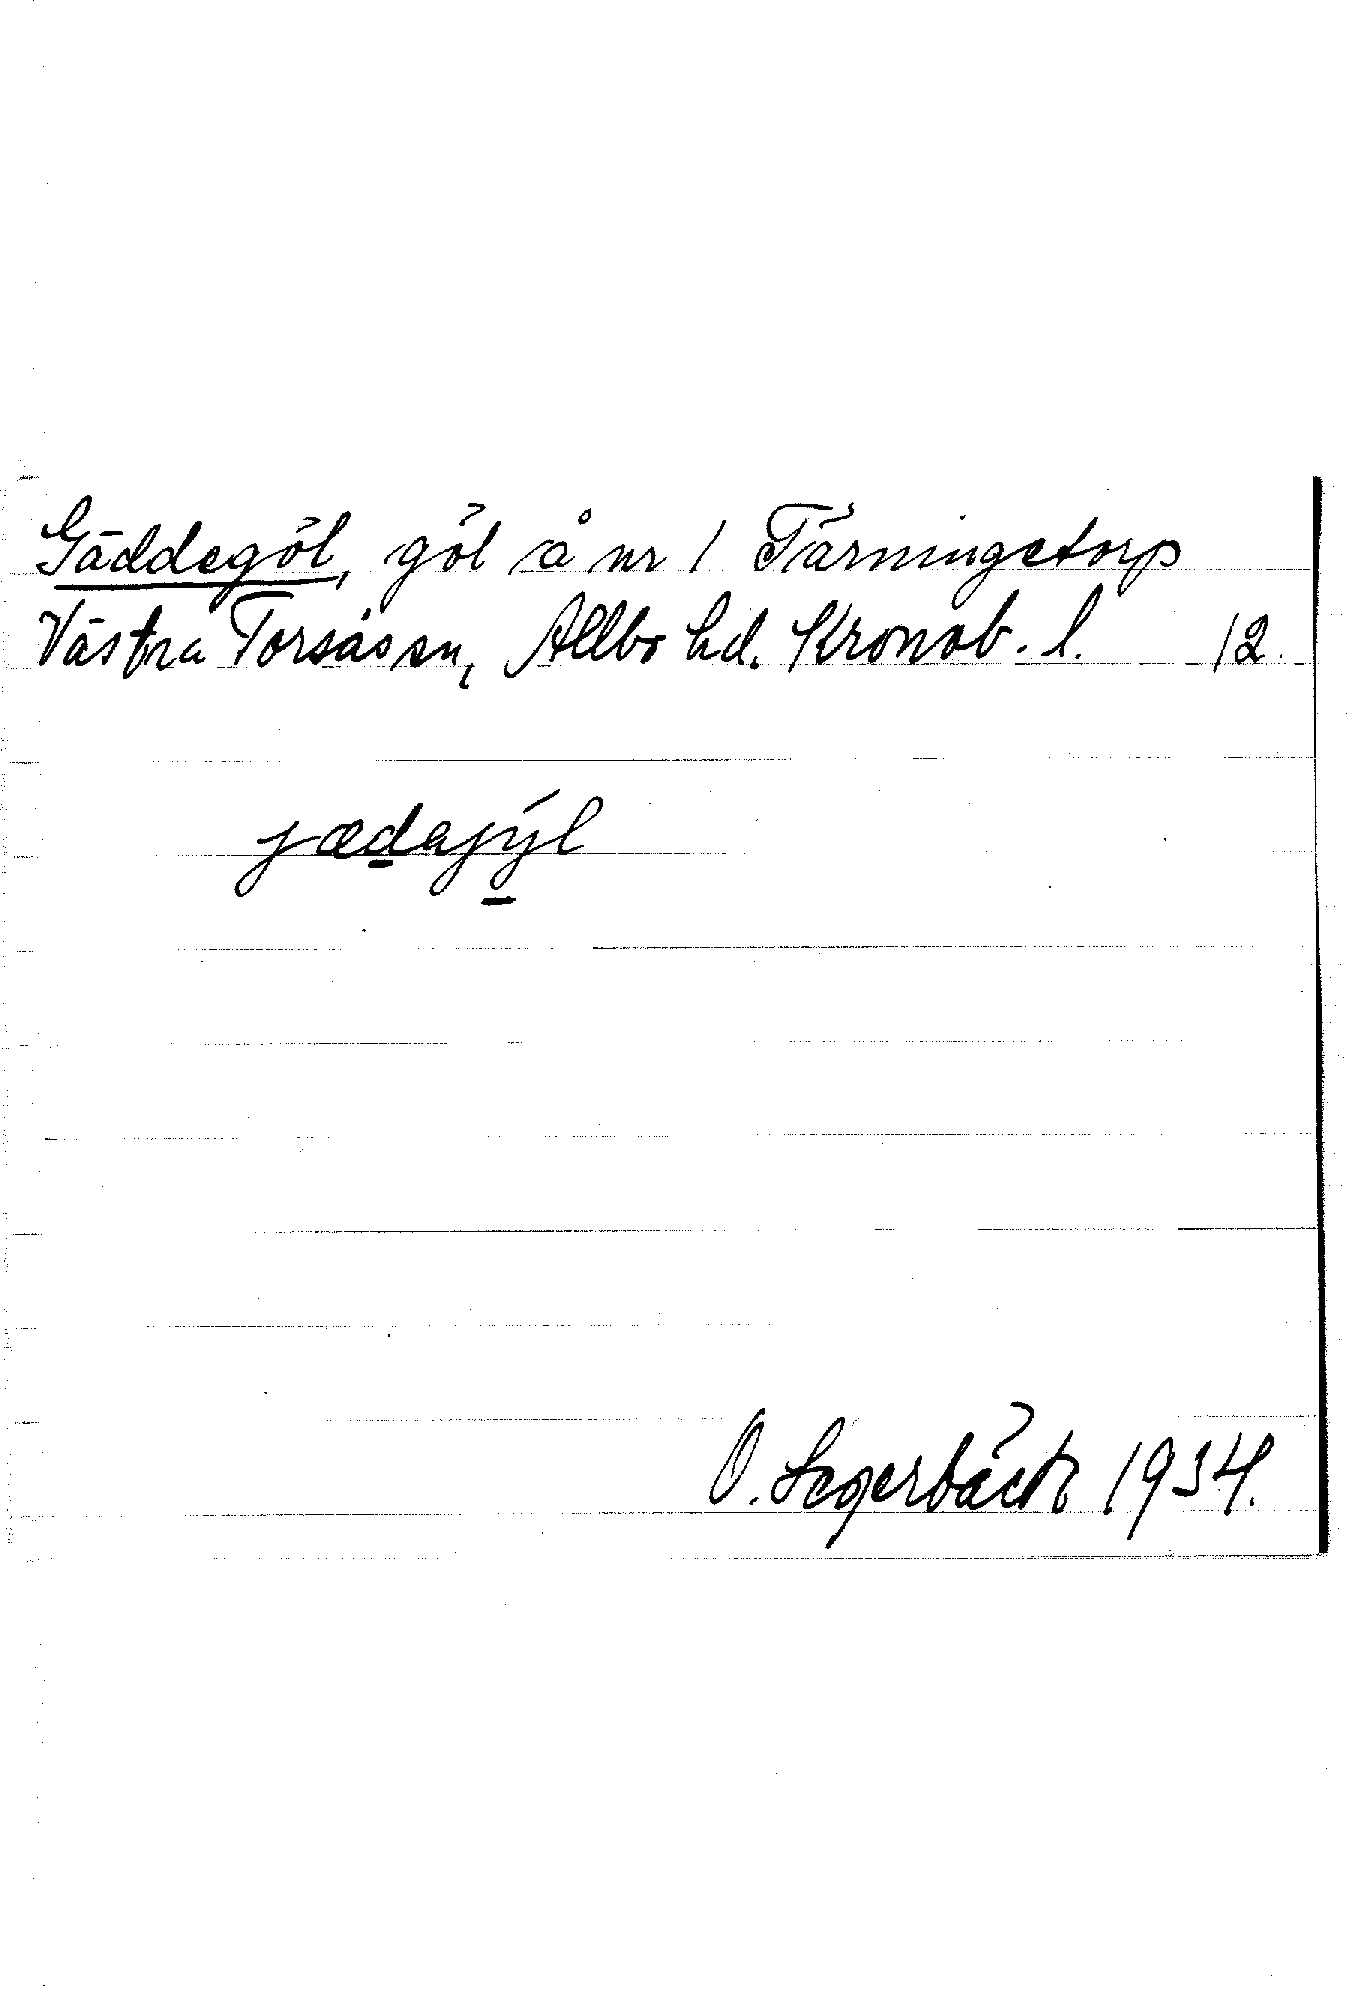 Gäddegöl, göl å nr 1 Tärningetorp
Västra Torsås sn, Allbo hd. Kronob. l. 12.
jædajýl
O. Segerbäck 1934.